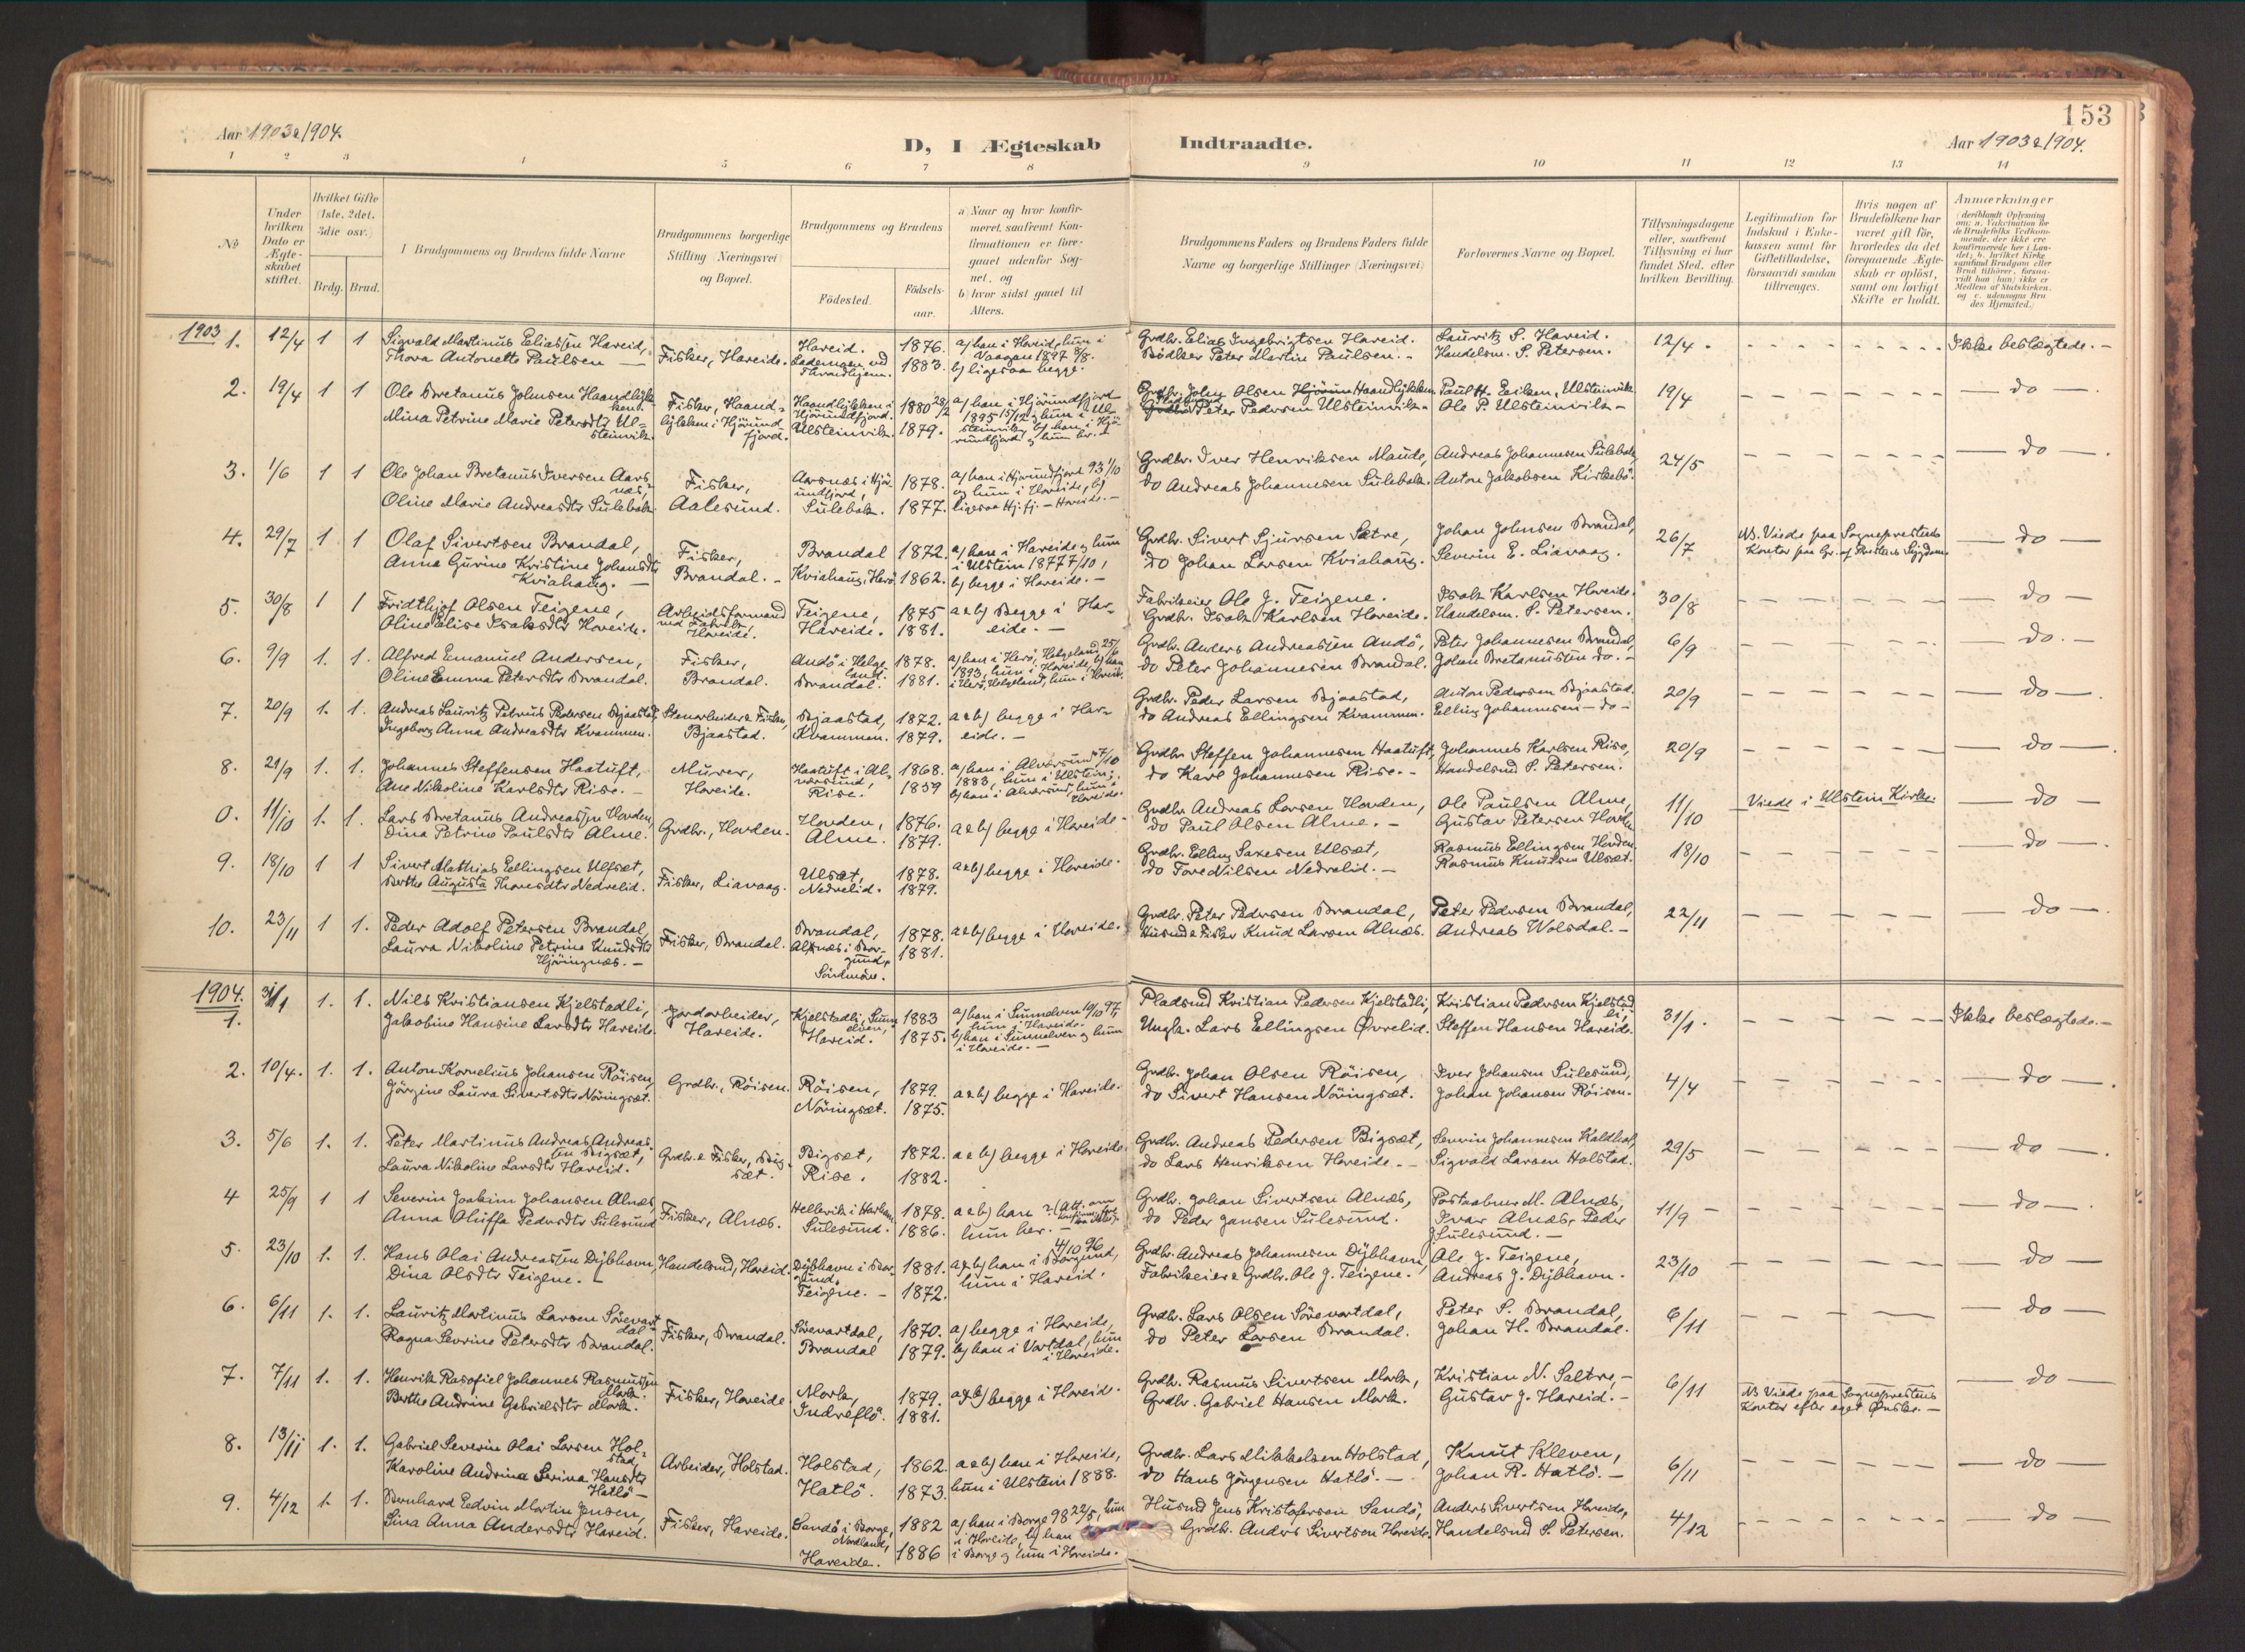 153
Aar 1903 & 1904.
D, I Ægteskab Indtraadte.
Aar 1903 & 1904.
1 2 3 4 5 6 7 8 9 10 11 12 13 14
№
Under hvilken Dato er Ægteskabet stiftet.
Hvilket Gifte (1ste, 2det, 3die osv.)
Brdg. Brud.
Brudgommens og Brudens fulde Navne
Brudgommens borgerlige Stilling (Næringsvei) og Bopæl.
Brudgommens og Brudens
Födested.
Födsels-aar.
a) Naar og hvor konfirmeret, saafremt Konfirmationen er foregaaet udenfor Sognet, og
b) hvor sidst gaaet til Alters.
Brudgommens Faders og Brudens Faders fulde Navne og borgerlige Stillinger (Næringsvei)
Forlovernes Navne og Bopæl.
Tillysningsdagene eller, saafremt Tillysning ei har fundet Sted, efter hvilken Bevilling.
Legitimation for Indskud i Enkekassen samt for Giftetilladelse, forsaavidt saadan tiltrænges.
Hvis nogen af Brudefolkene har været gift för, hvorledes da det foregaaende Ægteskab er oplöst, samt om lovligt Skifte er holdt.
Anmærkninger
1903 1. 12/4 1 1 Sigvald Martinus Eliassen Hareid, Thora Antonette Paulsen — Fisker, Hareide. Hareid. 1876. 1883. Grdbr. Elias Ingebrigtsen Hareid. Bödker Peter Martin Paulsen. - Lauritz S. Hareid. Handelsm. S. Petersen. 12/4. Ikke beslægtede. -
2. 19/4 1 1 Ole Bretanus Johnsen Haandlykken. Mina Petrine Marie Petersdtr Ulsteinvik. Fisker, Haandlykken i Hjörundfjord. Haandlykken i Hjörundfjord. Ulsteinvik. 1880 1879. Peter Pedersen Ulsteinvik - Paul H. Eiken, Ulsteinvik Ole P. Ulsteinvik - 19/4 — do —.
3. 1/6 1 1 Ole Johan Bretanus Iversen Aarsnæs, Oline Marie Andreasdtr Sulebak. Fisker, Aalesund. Aarsnæs i Hjörundfjord, Sulebak. 1878. 1877. a) han i Hjörundfjord 93 1/10 og hun i Hareide, b) ligesaa Hj.fj. - Hareide. - Grdbr. Iver Henriksen Maude, do Andreas Johannesen Sulebak. Andreas Johannesen Sulebak, Anton Jakobsen Kirkebö. 24/5 — do —.
4. 29/7 1 1 Olaf Sivertsen Brandal, Anna Gurine Kristine Johansdtr Kviahaug. — Fisker, Brandal. - Brandal Kviahaug, Herö 1872. 1862. a) han i Hareide og hun i Ulstein 1877 7/10, b) begge i Hareide. - Grdbr. Sivert Sjursen Sætre, do Johan Larsen Kviahaug. Johan Johnsen Brandal, Severin E. Liavaag. 26/7 NB. Viede paa Sogneprestens Kontor paa Gr. af Prestens Sygdom — do —
5. 30/8 1 1 Fridthjof Olsen Teigene, Oline Elise Isaksdtr Hareide. Arbeidsformand ved Fabrik, Hareide. Teigene, Hareide. 1875 1881. a & b) begge i Hareide. — Fabrikeier Ole J. Teigene. Grdbr. Isak Karlsen Hareide. Isak Karlsen Hareide. Handelsm. S. Petersen. 30/8 — do —
6. 9/9 1. 1. Alfred Emanuel Andersen, Oline Emma Petersdtr Brandal. Fisker, Brandal. Andö i Helgeland. Brandal. 1878. 1881. a) han i Herö, Helgeland 25/6 1893, hun i Hareide, b) han i Herö, Helgeland, hun i Hareide. Grdbr. Anders Andreassen Andö, do Peter Johannesen Brandal. Peter Johannesen Brandal, Johan Bretanussen do. - 6/9 — do. —
7. 20/9 1. 1. Andreas Lauritz Petrus Pedersen Bjaastad, Ingeborg Anna Andreasdtr Kvammen. Stenarbeider & Fisker, Bjaastad. Bjaastad, Kvammen. 1872. 1879. a & b) begge i Hareide. - Grdbr. Peder Larsen Bjaastad, do Andreas Ellingsen Kvammen. Anton Pedersen Bjaastad. Elling Johannesen - do - 20/9 — do —.
8. 21/9 1. 1. Johannes Steffensen Haatuft, Ane Nikoline Karlsdtr Rise. - Murer, Hareide. Haatuft i Alversund, Rise. 1868. 1859 a) han i Alversund 7/10 1883, hun i Ulstein, b) han i Alversund, hun i Hareide. Grdbr. Steffen Johannesen Haatuft, do Karl Johannesen Rise. - Johannes Karlsen Rise, Handelsmd S. Petersen. 20/9 — do —.
0. 11/10 1. 1. Lars Bretanus Andreassen Hovden, Dina Petrine Paulsdtr Alme. Grdbr., Hovden. Hovden, Alme. 1876. 1879. a & b) begge i Hareide - Grdbr. Andreas Larsen Hovden, do Paul Olsen Alme. - Ole Paulsen Alme, Gustav Petersen Hovden 11/10 Viede i Ulstein Kirke. — do —
9. 18/10 1 1 Sivert Mathias Ellingsen Ulfsæt, Berthe Augusta Thoresdtr Nedrelid. Fisker, Liavaag. Ulsæt, Nedrelid. 1878. 1879. a & b) begge i Hareide. Grdbr. Elling Saxesen Ulsæt, do Tore Nilsen Nedrelid. - Rasmus Ellingsen Hovden. Rasmus Knutsen Ulsæt. 18/10 — do —.
10. 23/11 1 1. Peder Adolf Petersen Brandal, Laura Nikoline Petrine Knudsdtr Hjöringnæs. - Fisker, Brandal. Brandal, Alnæs i Borgund, Söndmöre. 1878. 1881. a & b) begge i Hareide. Grdbr. Peter Pedersen Brandal, Husmd & Fisker Knud Larsen Alnæs. Peter Pedersen Brandal, Andreas Wolsdal. - 22/11 — do —.
1904. 1. 31/1 1. 1. Nils Kristiansen Kjelstadli, Jakobine Hansine Larsdtr Hareide. Jordarbeider, Hareide. Kjelstadli, Sunnelven, Hareid. 1883 1875. a) han i Sunnelven 10/10 97, hun i Hareide. b) han i Sunnelven og hun i Hareide. - Pladsmd Kristian Pedersen Kjelstadli, Ungk. Lars Ellingsen Øvrelid. Kristian Pedersen Kjelstadli, Steffen Hansen Hareide. 31/1. Ikke beslægtede. -
2. 10/4. 1. 1. Anton Kornelius Johansen Röisen, Jörgine Laura Sivertsdtr Nöringsæt. Grdbr., Röisen. Röisen, Nöringsæt. 1879. 1875. a & b) begge i Hareide. Grdbr. Johan Olsen Röisen, do Sivert Hansen Nöringsæt. Iver Johansen Sulesund, Johan Johansen Röisen. 4/4 — do —.
3. 5/6 1. 1. Peter Martinus Andreas Andreassen Bigsæt, Laura Nikoline Larsdtr Hareid. Grdbr. & Fisker, Bigsæt. Bigsæt, Rise. 1872. 1882. a & b) begge i Hareide. Grdbr. Andreas Pedersen Bigsæt, do Lars Henriksen Hareide. - Severin Johannesen Kaldhol, Sigvald Larsen Holstad. 29/5 — do —.
4 25/9 1 1 Severin Joakim Johansen Alnæs, Anna Oluffa Pedersdtr Sulesund Fisker, Alnæs. Hellevik i Harham, Sulesund. 1878. 1886. a & b) han ? hun her. - Grdbr. Johan Sivertsen Alnæs, do Peder Jansen Sulesund. Postaabner M. Alnæs, Ivar Alnæs, Peder J. Sulesund. - 11/9 — do —.
5. 23/10 1. 1. Hans Olai Andreassen Dybhavn, Dina Olsdtr Teigene. - Handelsmd, Hareid. Dybhavn i Borgund. Teigene. - 1881. 1872. 4/10 96 a & b) han i Borgund, hun i Hareid. Grdbr. Andreas Johannesen Dybhavn, Fabrikeier & Grdbr. Ole J. Teigene. Ole J. Teigene, Andreas J. Dybhavn. 23/10 — do —
6. 6/11 1. 1. Lauritz Martinus Larsen Sörevartdal Ragna Sevrine Petersdtr Brandal. Fisker, Brandal. Sörevartdal, Brandal 1870. 1879. a) begge i Hareide, b) han i Vartdal, hun i Hareide. Grdbr. Lars Olsen Sörevartdal, do Peter Larsen Brandal. Peter S. Brandal, Johan H. Brandal. 6/11 — do —
7. 7/11 1. 1. Henrik Rasofiel Johannes Rasmussen Mork. Berthe Andrine Gabrielsdtr Mork. Fisker, Hareide Mork, Indreflö. 1879. 1881. a & b) begge i Hareid. Grdbr. Rasmus Sivertsen Mork, Grdbr. Gabriel Hansen Mork. Kristian N. Saltre, - Gustav J. Hareid. - 6/11 NB Viede paa Sogneprestens Kontor efter eget Ønske. - — do —
8. 13/11 1. 1. Gabriel Severin Olai Larsen Holstad, Karoline Andrina Serina Hansdtr Hatlö - Arbeider, Holstad. Holstad, Hatlö. 1862. 1873. a & b) han i Hareide, hun i Ulstein 1888. Grdbr. Lars Mikkelsen Holstad, do Hans Jörgensen Hatlö. - Knut Kleven, Johan R. Hatlö. - 6/11 — do —
9. 4/12 1. 1. Bernhard Edvin Martin Jensen, Sina Anna Andersdtr Hareid. Fisker, Hareide. Sandö i Borge, Nordland, Hareide. 1882 1886 a) han i Borge 98 22/5, hun i Hareide, b) han i Borge og hun i Hareide. Husmd Jens Kristofersen Sandö, Grdbr. Anders Sivertsen Hareide. Anders Sivertsen Hareide, Handelsmd S. Petersen. 4/12 — do —